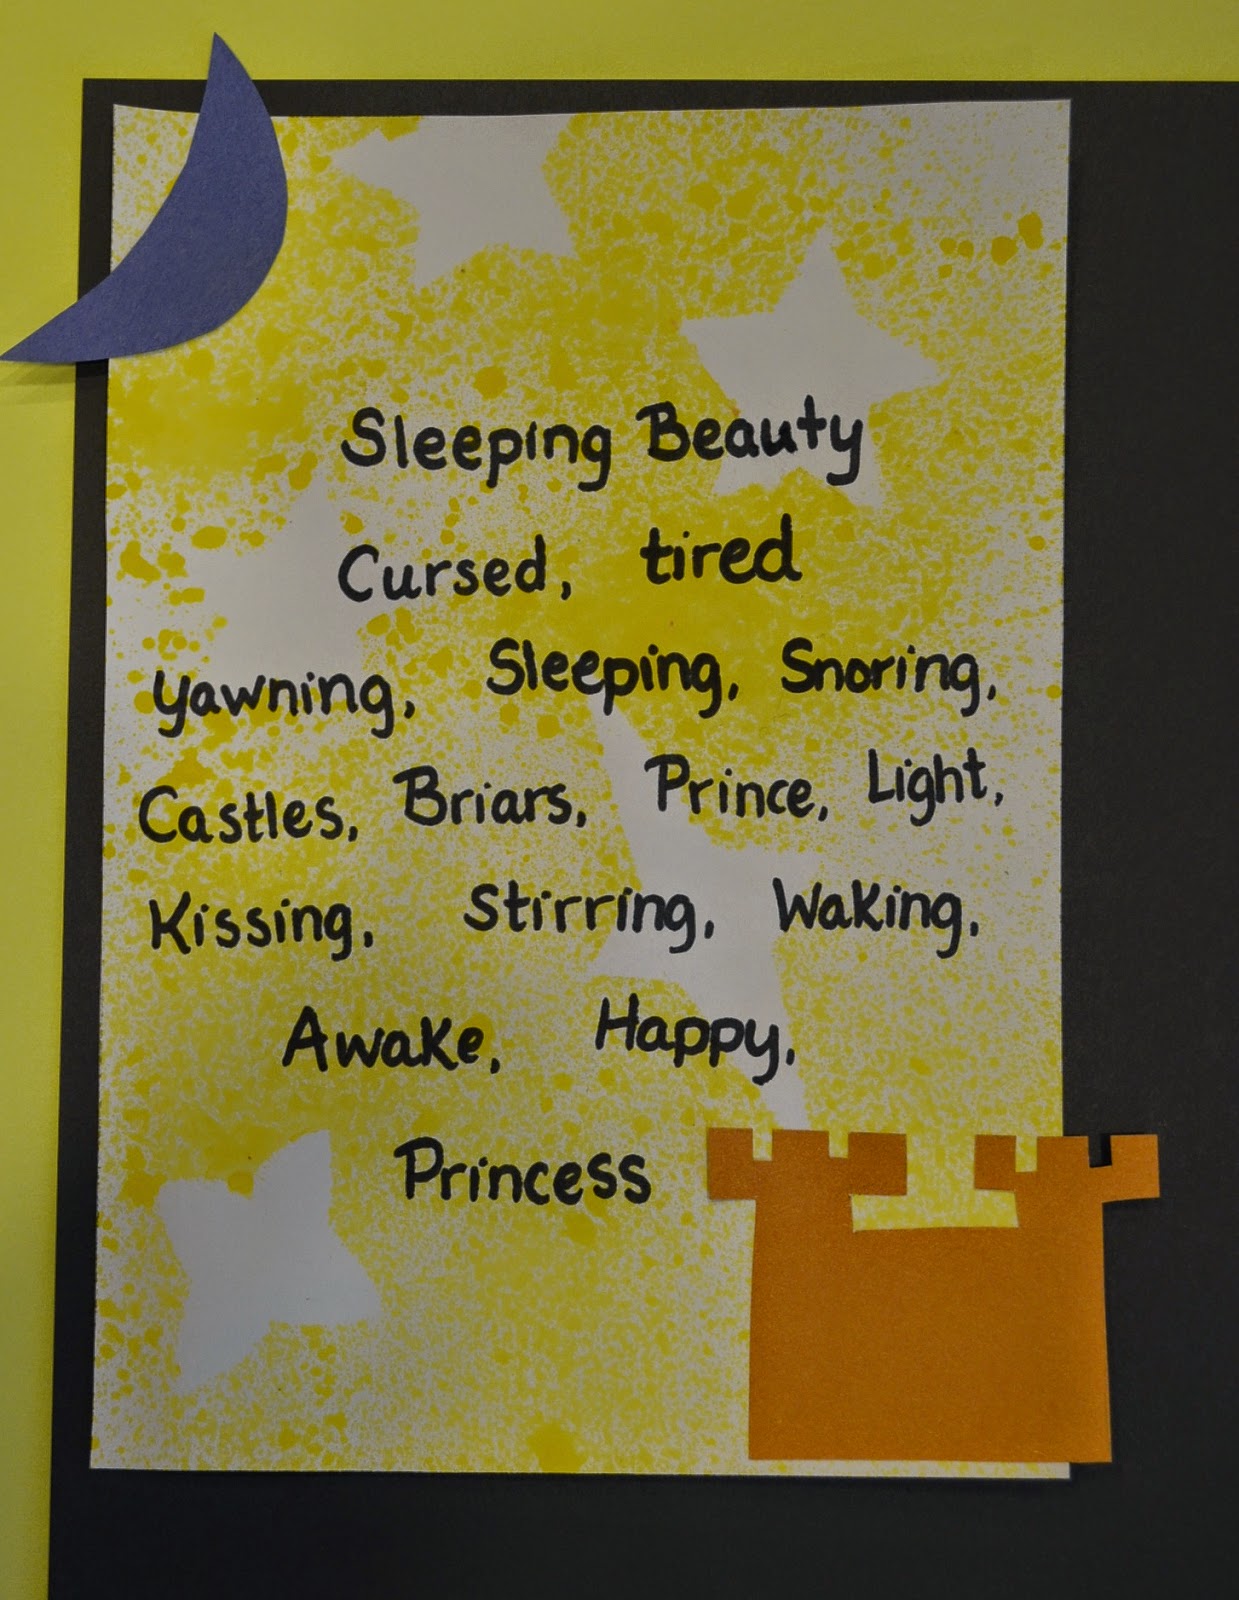 Sleeping Beauty
Cursed, tired
Yawning, Sleeping, Snoring,
Castles, Briars, Prince, Light,
Kissing, Stirring, Waking,
Awake, Happy,
Princess